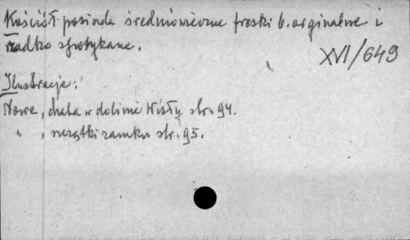 Kościół posiada średniowieczne freski b. orginalne i
rzadko spotykane.
XVI/649
Ilustracje:
Nowe, chata w dolinie Wisły str. 94.
" , resztki zamku str. 95.